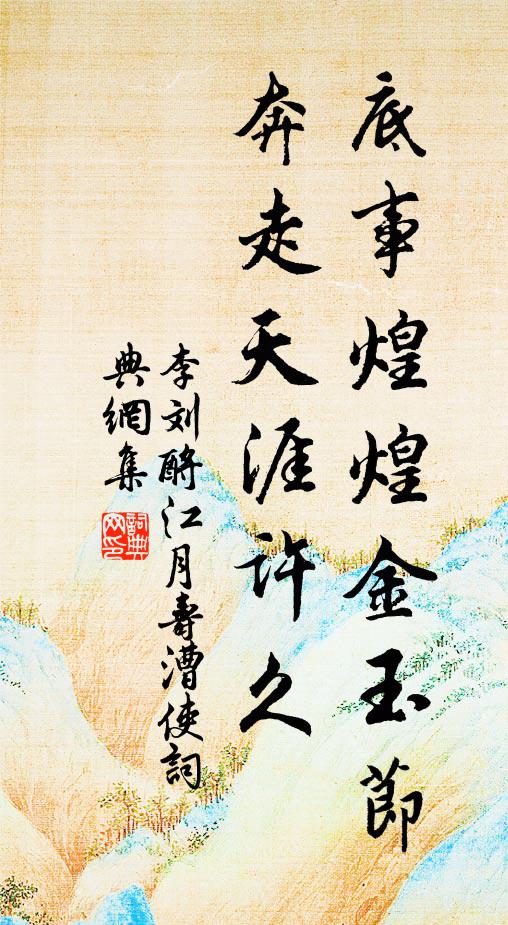 底事煌煌金玉節
奔走天涯許久
李刘酹江月壽漕使詞
典網集
詞典